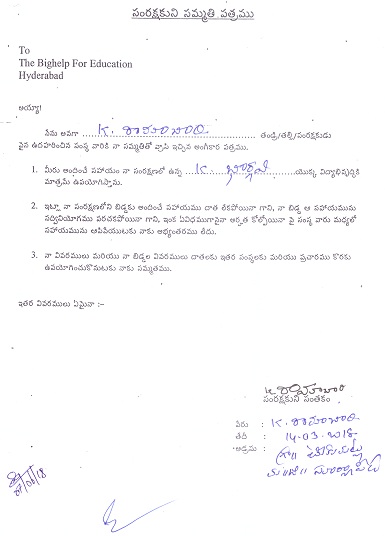 సంరక్షకుని సమ్మతి పత్రము
To
The Bighelp For Education
Hyderabad
అయ్యా!
నేను అనగా K. రామాచారి తండ్రి/తల్లి/సంరక్షకుడు
పైన ఉదహరించిన సంస్థ వారికి నా సమ్మతితో వ్రాసి ఇచ్చిన అంగీకార పత్రము.
1. మీరు అందించే సహాయం నా సంరక్షణలో ఉన్న K. భార్గవి యొక్క విద్యాభివృద్ధికి
మాత్రమే ఉపయోగిస్తాను.
2. ఇట్లు నా సంరక్షణలోని బిడ్డకు అందించే సహాయము దాత లేకపోయినా గాని, నా బిడ్డ ఆ సహాయమును
సద్వినియోగము పరచకపోయినా గాని, ఇంక ఏవిధముగానైనా అర్హత కోల్పోయినా పై సంస్థ వారు మధ్యలో
సహాయమును ఆపివేయుటకు నాకు అభ్యంతరము లేదు.
3. నా వివరములు మరియు నా బిడ్డల వివరములు దాతలకు ఇతర సంస్థలకు మరియు ప్రచారము కొరకు
ఉపయోగించుకొనుటకు నాకు సమ్మతము.
ఇతర వివరములు ఏమైనా :-
K. రామాచారి
సంరక్షకుని సంతకం
పేరు : K. రామాచారి
తేదీ : 14-03-2018
అడ్రసు : గ్రా॥
మం॥